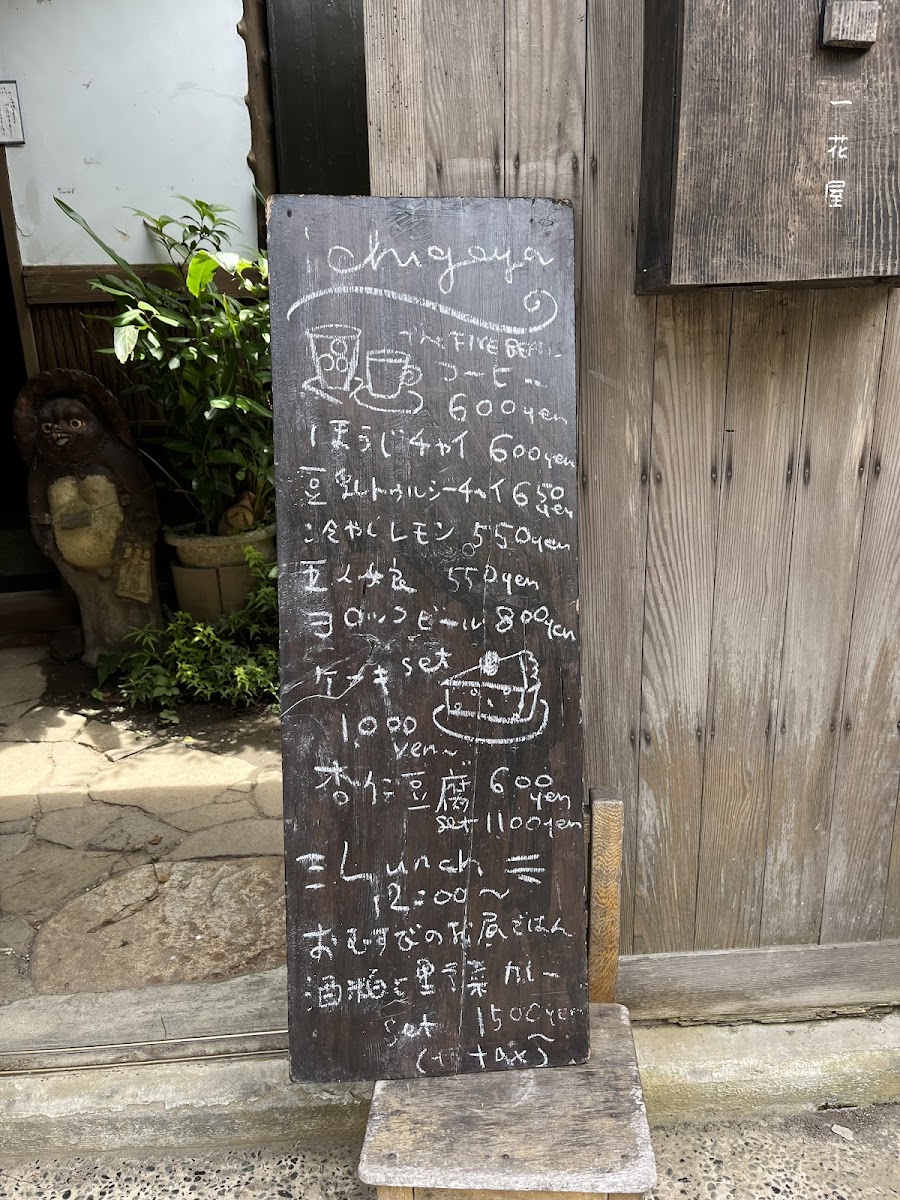 ichigeya
THE FIVE BEANS
コーヒー
600yen
ほうじチャイ 600yen
豆乳トゥルシーチャイ 650yen
冷やしレモン 550yen
550yen
ヨロッコビール 800yen
ケーキ set
1,000
yen~
杏仁豆腐 600yen
set 1100yen
Lunch
12:00~
おむすびの花屋ごはん
酒粕と野菜カレー
set 1500yen
(+tax)
一花屋